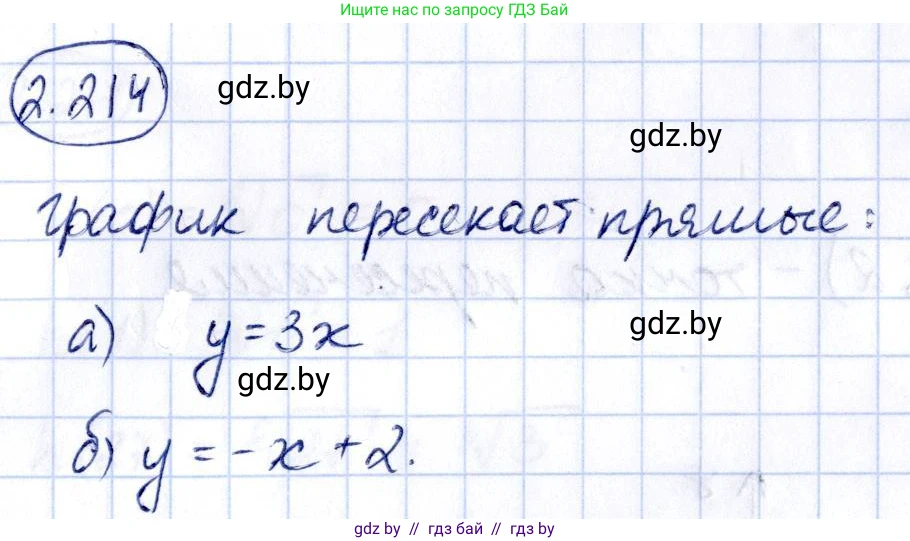 Ищите нас по запросу ГДЗ Бай
2.214
gdz.by
gdz.by
график пересекает прямые:
а) y = 3x
gdz.by
gdz.by
б) y = -x + 2.
gdz by // гдз бай // гдз by